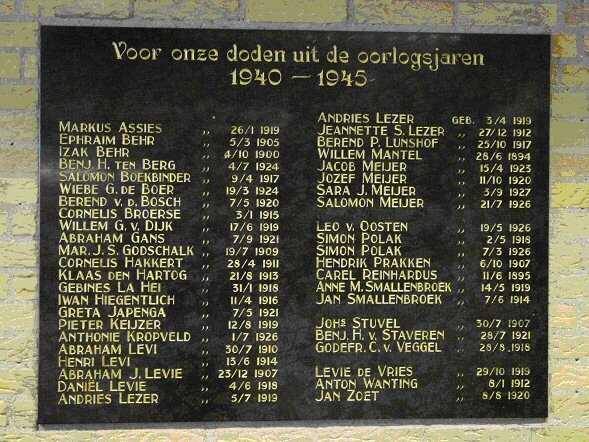 Voor onze doden uit de oorlogsjaren
1940 — 1945
Markus Assies ,, 26/1 1919
Ephraim Behr ,, 5/3 1905
Izak Behr ,, 4/10 1900
Benj. H. ten Berg ,, 4/7 1924
Salomon Boekbinder ,, 9/4 1917
Wiebe G. de Boer ,, 19/3 1924
Berend v. d. Bosch ,, 7/5 1920
Cornelis Broerse ,, 3/1 1915
Willem G. v. Dijk ,, 17/6 1919
Abraham Gans ,, 7/9 1921
Mar. J. S. Godschalk ,, 19/7 1909
Cornelis Hakkert ,, 28/4 1911
Klaas den Hartog ,, 21/8 1913
Gebines La Hei ,, 31/1 1918
Iwan Hiegentlich ,, 11/4 1916
Greta Japenga ,, 7/5 1921
Pieter Keijzer ,, 12/8 1919
Anthonie Kropveld ,, 1/7 1926
Abraham Levi ,, 30/7 1910
Henri Levi ,, 13/6 1914
Abraham J. Levie ,, 23/12 1907
Daniël Levie ,, 4/6 1918
Andries Lezer ,, 5/7 1919
Andries Lezer geb. 3/4 1919
Jeannette S. Lezer ,, 27/12 1912
Berend P. Lunshof ,, 25/10 1917
Willem Mantel ,, 28/6 1894
Jacob Meijer ,, 15/4 1923
Jozef Meijer ,, 11/10 1920
Sara J. Meijer ,, 5/9 1927
Salomon Meijer ,, 21/7 1926
Leo v. Oosten ,, 19/5 1926
Simon Polak ,, 2/5 1918
Simon Polak ,, 7/3 1926
Hendrik Prakken ,, 6/10 1907
Carel Reinhardus ,, 11/6 1895
Anne M. Smallenbroek ,, 14/5 1919
Jan Smallenbroek ,, 7/6 1914
Johs Stuvel ,, 30/7 1907
Benj. H. v. Staveren ,, 28/7 1921
Godefr. C. v. Veggel ,, 28/8 1918
Levie de Vries ,, 29/10 1919
Anton Wanting ,, 8/1 1912
Jan Zoet ,, 8/8 1920